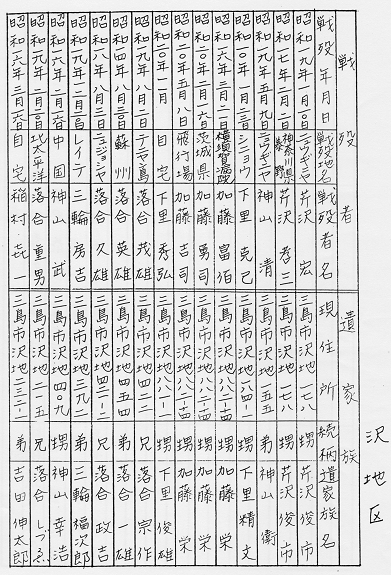 沢地区
戦歿者 遺家族
戦歿年月日 戦歿地名 戦歿者名 現住所 続柄 遺家族名
昭和一九年 月一〇日 ニューギニア 芹沢 宏 三島市沢地一七八 甥 芹沢俊市
昭和一七年 二月一日 神奈川県 芹沢孝三 三島市沢地一七八 甥 芹沢俊市
昭和一九年 五月九日 ニューギニヤ 神山 清 三島市沢地一五五 弟 神山 衛
昭和二〇年 一月 日 ショウ 下里克己 三島市沢地 下里精文
昭和二〇年 一月 日 横須賀 加藤富佰 三島市沢地 甥 加藤 栄
昭和二〇年 二月一六日 茨城県 加藤勇司 三島市沢地 甥 加藤 栄
昭和二〇年 五月八日 飛行場 加藤吉司 三島市沢地 甥 加藤 栄
昭和二〇年 一月 自宅 下里秀弘 三島市沢地 甥 下里俊雄
昭和一九年 八月三日 テニヤン島 落合茂雄 三島市沢地四二二 兄 落合宗作
昭和一四年 八月三〇日 蘇州 落合英雄 三島市沢地四五四 弟 落合一雄
昭和一八年 八月三日 ニュージョージヤ 落合久雄 三島市沢地 兄 落合政吉
昭和一九年 二月 日 レイテ 三輪房吉 三島市沢地三九二 弟 三輪福次郎
昭和一六年 二月 日 中国 神山 武 三島市沢地四〇九 甥 神山幸浩
昭和一九年 二月 日 北太平洋 落合重男 三島市沢地二一五 兄 落合しづゑ
昭和一六年 三月六日 自宅 稲村㐂一 三島市沢地 弟 吉田伸太郎